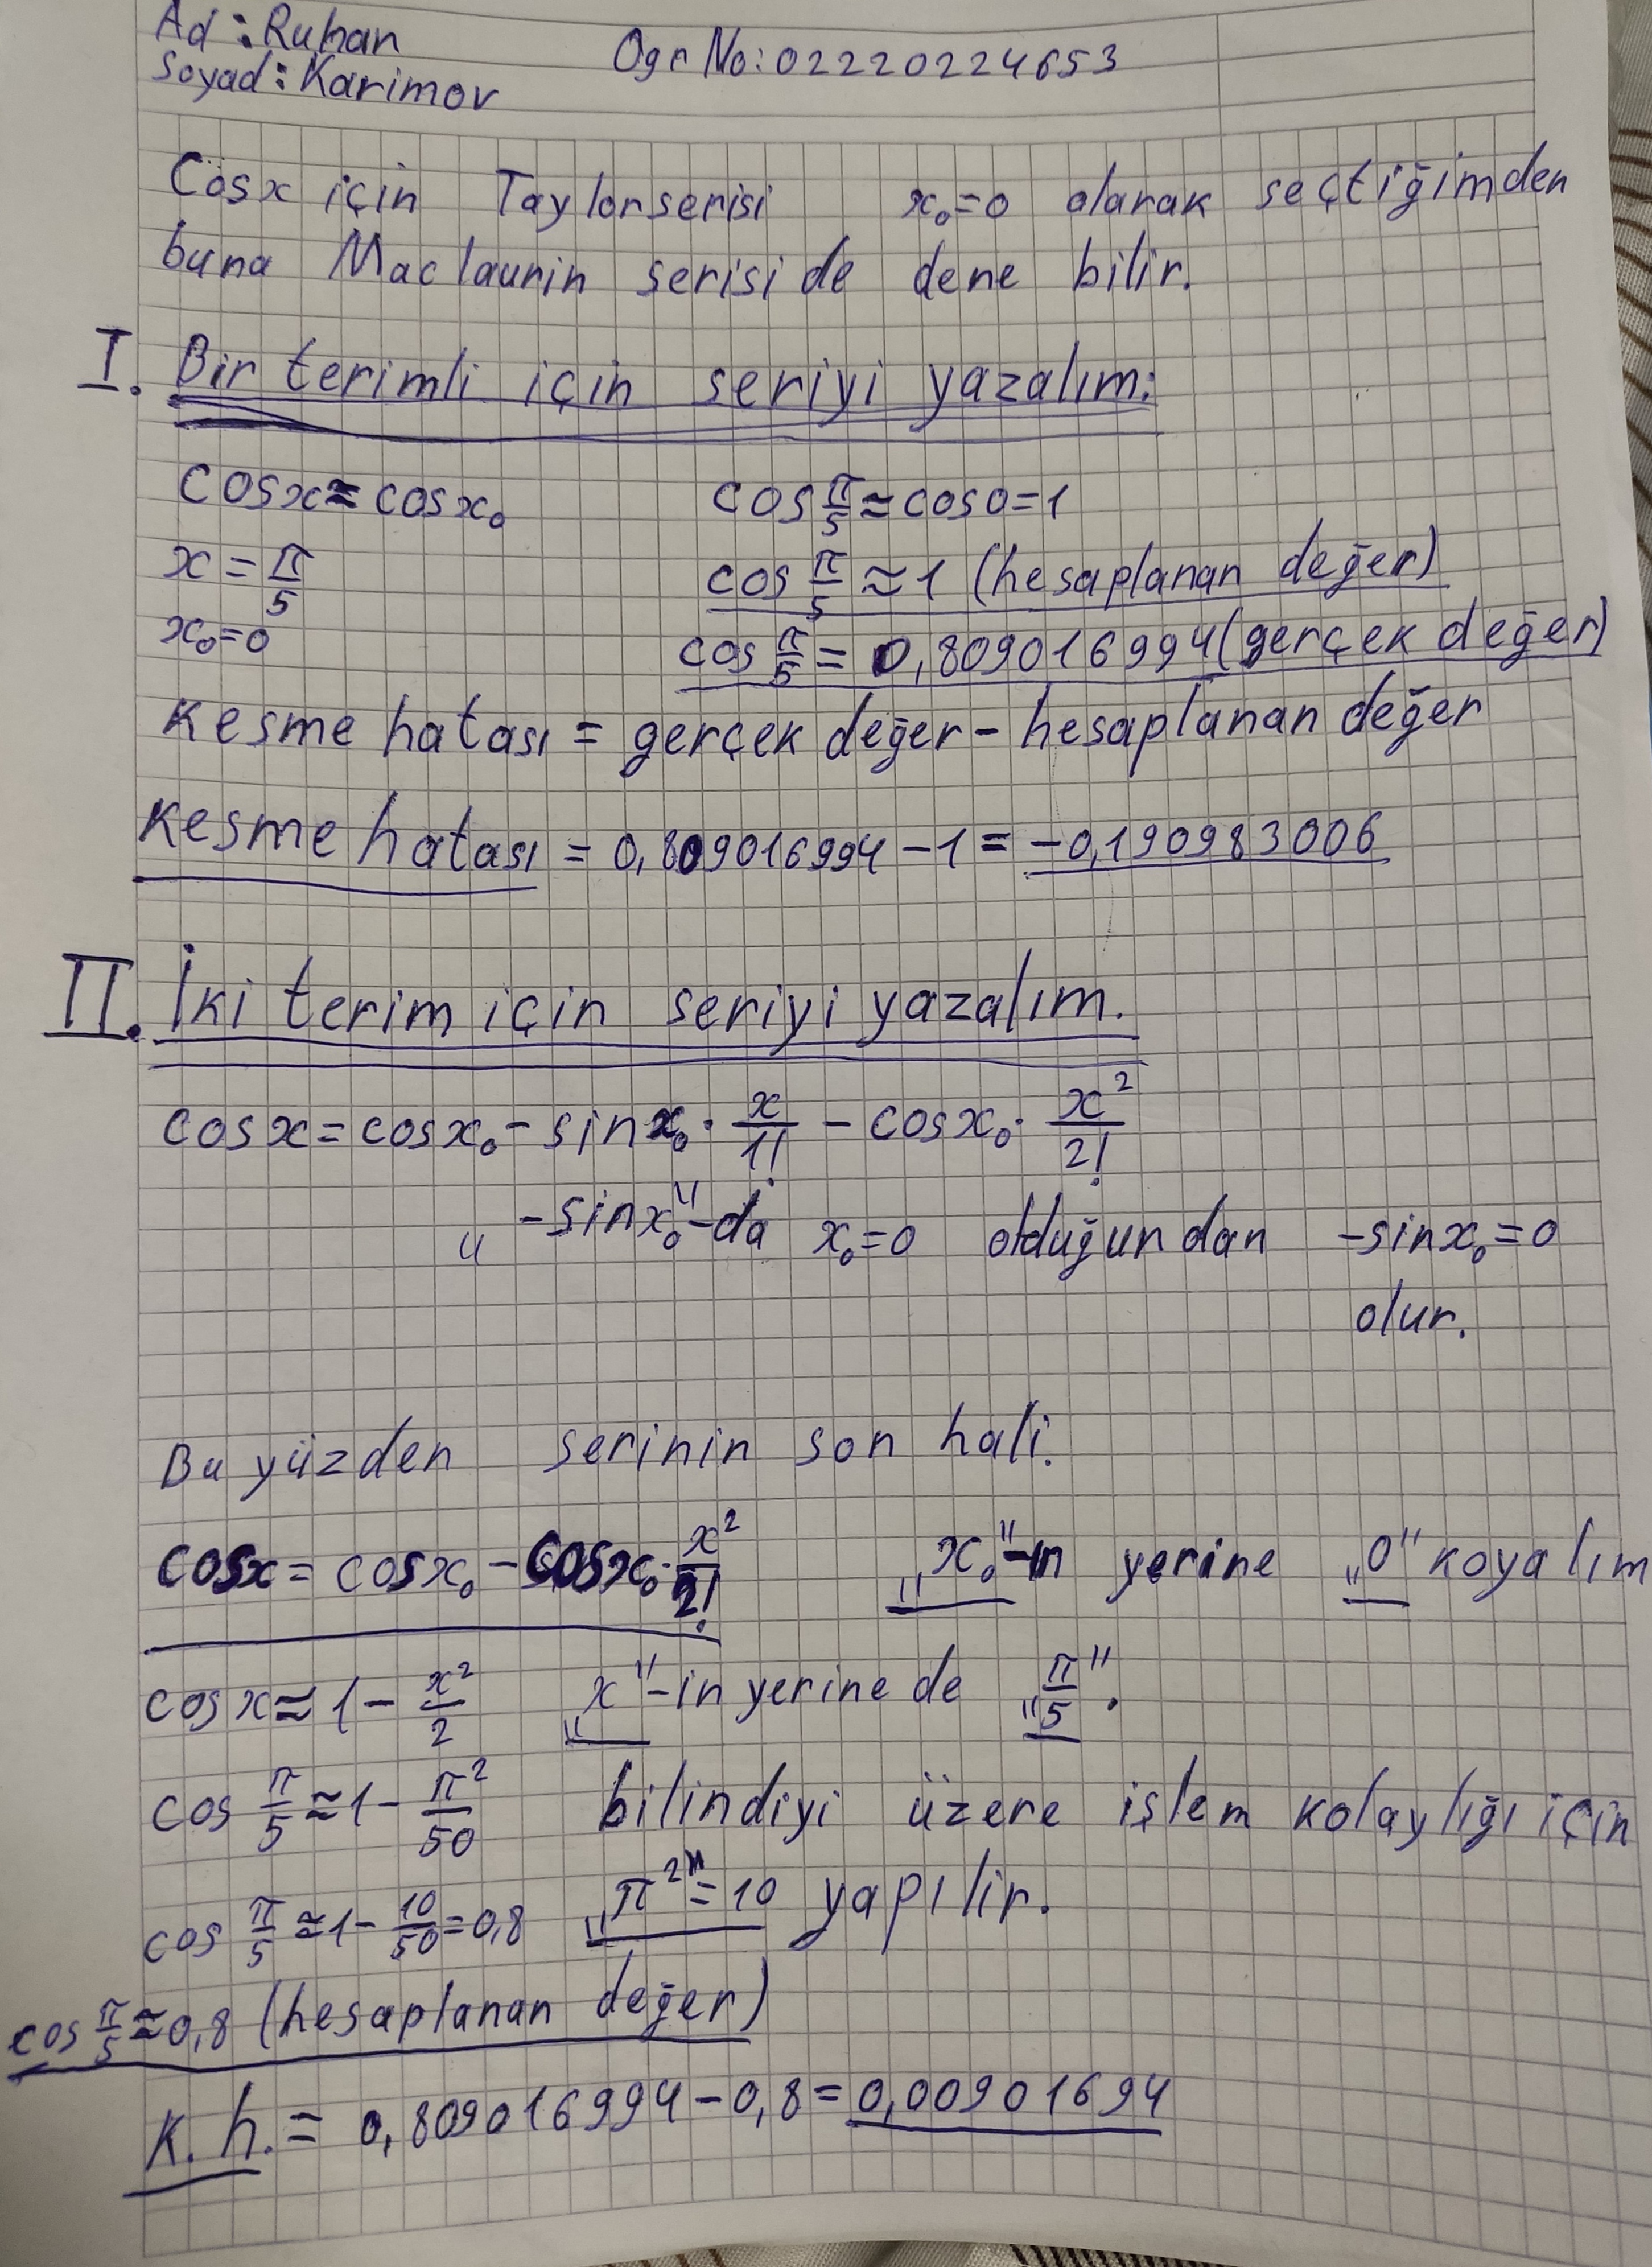 Ad : Ruhan
Soyad : Karimov
Ogr No: 02220224653
Cosx için Taylor serisi x₀=0 olarak seçtiğimden
buna Maclaurin serisi de dene bilir.
I. Bir terimli için seriyi yazalım:
cosx≈cosx₀
cos π/5 ≈ cos0=1
x = π/5
cos π/5 ≈ 1 (hesaplanan değer)
x₀=0
cos π/5 = 0,809016994 (gerçek değer)
Kesme hatası = gerçek değer - hesaplanan değer
Kesme hatası = 0,809016994 - 1 = -0,190983006
II. İki terim için seriyi yazalım.
cosx = cosx₀ - sinx₀ · x/1! - cosx₀ · x²/2!
„-sinx₀"-da x₀=0 olduğundan -sinx₀=0
olur.
Bu yüzden serinin son hali.
cosx = cosx₀ - cosx₀ · x²/2! „x₀"-ın yerine „0" koyalım
cosx ≈ 1 - x²/2 „x"-in yerine de „π/5".
cos π/5 ≈ 1 - π²/50 bilindiyi üzere işlem kolaylığı için
cos π/5 ≈ 1 - 10/50 = 0,8 „π²" = 10 yapılir.
cos π/5 ≈ 0,8 (hesaplanan değer)
K.h. = 0,809016994 - 0,8 = 0,00901694